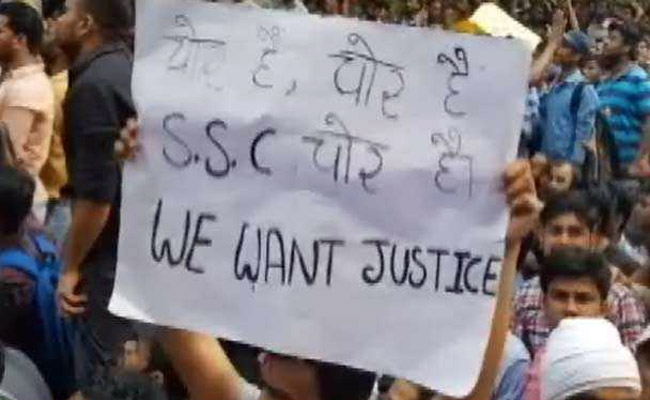 चोर है, चोर है
S.S.C चोर है।
WE WANT JUSTICE